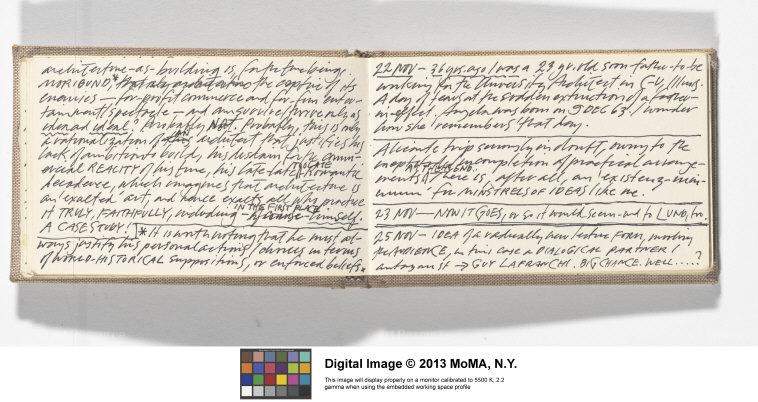 architecture-as-building is, for the time being,
MORIBUND,* the captive of its
enemies — for-profit commerce and for-fun enter-
tainment/spectacle — and can survive/thrive only as
idea and ideal? Probably NOT. Probably, this is only
a rationalization of an architect that justifies his
lack of ambition to build, his disdain for the comm-
ercial REALITY of his time, his late-late Romantic
TOO LATE
decadence, which imagines that architecture is
an 'exalted' art, and hence exalts all who practice
IN THE FIRST PLACE
it TRULY, FAITHFULLY, including himself.
A CASE STUDY! * It is worth noting that he must al-
ways justify his personal actions/choices in terms
of WORLD-HISTORICAL suppositions, or enforced beliefs.
22 NOV — 36 yrs. ago I was a 23 yr. old soon father-to-be
working for the University Architect in C-U, Illinois.
A day of tears at the sudden extinction of a father
in effect. Angela was born on 9 DEC 63. I wonder
how she remembers that day.
Alicante trip seriously in doubt, owing to the
incompletion of practical arrange-
AT THIS END.
ments. There is, after all, an 'existenz-min-
imum' for MINSTRELS OF IDEAS like me.
23 NOV — NOW IT GOES, or so it would seem — and to LUND, too.
25 NOV — IDEA of a radically new lecture form, involving
the AUDIENCE, in this case a DIALOGICAL PARTNER/
antagonist → GUY LAFRANCHI. BIG CHANCE. WELL.....?
Digital Image © 2013 MoMA, N.Y.
This image will display properly on a monitor calibrated to 5500 K, 2.2
gamma when using the embedded working space profile